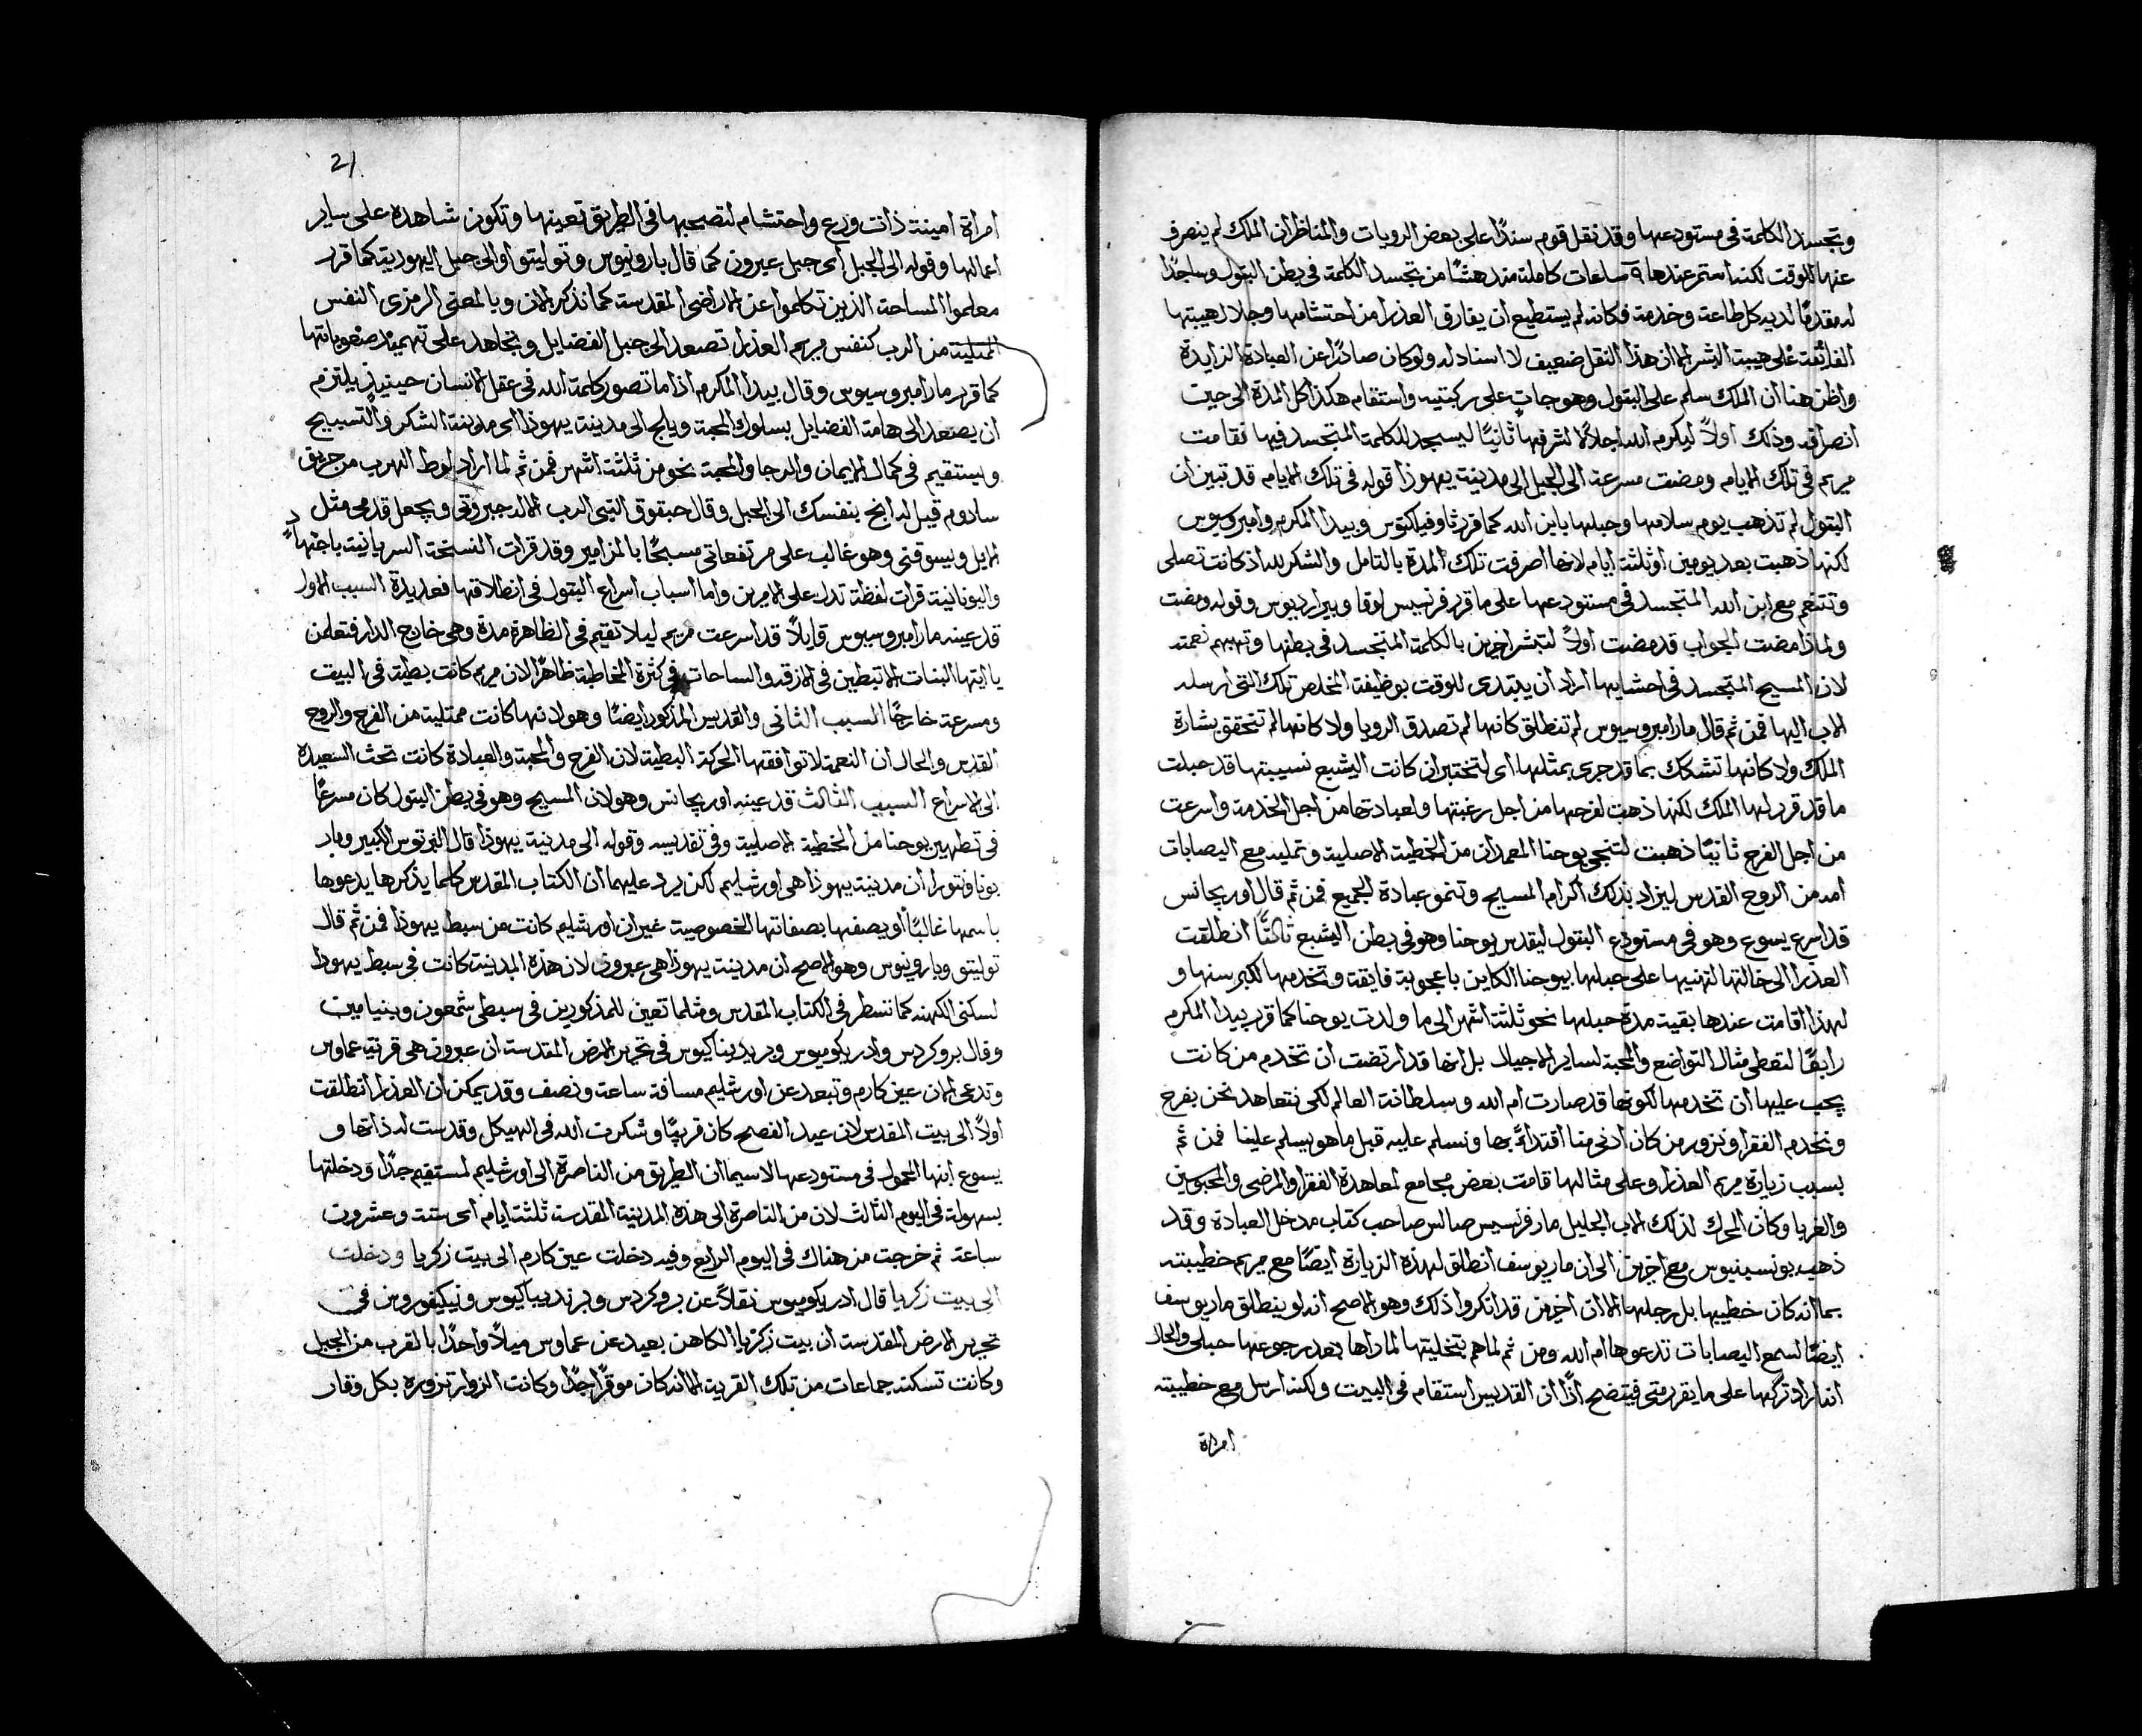 وتجسد الكلمة في مستودعها وقد نقل قوم سندًا على بعض الرويات والمناظر ان الملك لم ينصرف
عنها للوقت لكنه استمر عندها ٩ ساعات كاملة مندهشًا من تجسد الكلمة في بطن البتول وساجدًا
له مقدمًا لديه كل طاعة وخدمة فكانه لم يستطيع ان يفارق العذرا من احتشامها وجلال هيبتها
الفائقة على هيبة البشر الا ان هذا النقل ضعيف لا اسناد له ولو كان صادرًا عن العبادة الزايدة
واظن هنا ان الملك سلم على البتول وهو جاثٍ على ركبتيه واستقام هكذا كل المدة الى حين
انصرافه وذلك اولاً ليكرم ام الله اجلالاً لشرفها ثانيًا ليسجد للكلمة المتجسد فيها فقامت
مريم في تلك الايام ومضت مسرعة الى الجبل الى مدينة يهوذا قوله في تلك الايام قد تبين ان
البتول لم تذهب يوم سلامها وحبلها بابن الله كما قرر ثاوفيلكتوس وبيدا المكرم وامبروسيوس
لكنها ذهبت بعد يومين او ثلثة ايام لانها اصرفت تلك المدة بالتامل والشكر لله اذ كانت تصلى
وتتنعم مع ابن الله المتجسد في مستودعها على ما قرر فرنسيس لوقا وبيرارديوس وقوله ومضت
ولماذا مضت الجواب قد مضت اولاً لتبشر اخرين بالكلمة المتجسد في بطنها وتهبهم نعمته
لان المسيح المتجسد في احشايها اراد ان يبتدى للوقت بوظيفة المخلص تلك التي ارسله
الاب اليها فمن ثم قال مار امبروسيوس لم تنطلق كانها لم تصدق الرويا ولا كانها لم تتحقق بشارة
الملك ولا كانها تشكك بما قد جرى بمثلها اى لتختبر ان كانت اليشبع نسيبتها قد حبلت
ما قد قرر لها الملك لكنها ذهبت لفرحها من اجل رغبتها ولعبادتها من اجل الخدمة واسرعت
من اجل الفرح ثانيًا ذهبت لتنجى يوحنا المعمدان من الخطية الاصلية وتمليه مع اليصابات
امه من الروح القدس ليزاد بذلك اكرام المسيح وتنمو عبادة الجميع فمن ثم قال اوريجانس
قد اسرع يسوع وهو في مستودع البتول ليقدس يوحنا وهو في بطن اليشبع ثالثًا انطلقت
العذرا الى خالتها لتهنيها على حبلها بيوحنا الكاين باعجوبة فايقة وتخدمها لكبر سنها و
لهذا اقامت عندها بقية مدة حبلها نحو ثلثة اشهر الى ما ولدت يوحنا كما قرر بيدا المكرم
رابعًا لتعطى مثال التواضع والمحبة لساير الاجيال بل انها قد ارتضت ان تخدم من كانت
يجب عليها ان تخدمها لكونها قد صارت ام الله وسلطانة العالم لكى نتعاهد نحن بفرح
ونخدم الفقرا ونزور من كان ادنى منا اقتداءً بها ونسلم عليه قبل ما هو يسلم علينا فمن ثم
بسبب زيارة مريم العذرا وعلى مثالها قامت بعض مجامع لمعاهدة الفقرا والمرضى والمحبوسين
والغربا وكان المحرك لذلك الاب الجليل مار فرنسيس صالس صاحب كتاب مدخل العبادة وقد
ذهب يونسينيوس مع اخرين الى ان مار يوسف انطلق لهذه الزيارة ايضًا مع مريم خطيبته
بما انه كان خطيبها بل رجلها الا ان اخرين قد انكروا ذلك وهو الاصح انه لو ينطلق مار يوسف
ايضًا لسمع اليصابات تدعوها ام الله ومن ثم لما هم بتخليتها لما راها بعد رجوعها حبلى والحال
انه اراد تركها على ما يقرر متى فيتضح اذًا ان القديس استقام في البيت ولكنه ارسل مع خطيبته
امراة
21
امراة امينة ذات ورع واحتشام لتصحبها في الطريق تعينها وتكون شاهدة على ساير
اعمالها وقوله الى الجبل اى جبل عبرون كما قال بارونيوس وتوليتو او الى جبل اليهودية كما قرر
معلموا المساحة الذين تكلموا عن الاراضى المقدسة كما نذكر الان وبالمعنى الرمزى النفس
الممتلية من الرب كنفس مريم العذرا تصعد الى جبل الفضايل وتجاهد على تهميد صعوباتها
كما قرر مار امبروسيوس وقال بيدا المكرم اذا ما تصور كلمة الله في عقل الانسان حينيذ يلتزم
ان يصعد الى هامة الفضايل بسلوك المحبة ويلج الى مدينة يهوذا اى مدينة الشكر والتسبيح
ويستقيم في كمال الايمان والرجا والمحبة نحو من ثلثة اشهر فمن ثم لما اراد لوط الهرب من حريق
سادوم قيل له انج بنفسك الى الجبل وقال حبقوق النبى الرب الاله جبروتى ويجعل قدمى مثل
الايل ويسوقنى وهو غالب على مرتفعاتى مسبحًا بالمزامير وقد قرات النسخة السريانية باجتهاد
واليونانية قرات لفظة تدل على الامرين واما اسباب اسراع البتول في انطلاقها فعديدة السبب الاول
قد عينه مار امبروسيوس قايلاً قد اسرعت مريم ليلا تقيم في الظاهر مدة وهى خارج الدار فتعلمن
يا ايتها البنات الا تبطين في الازقة والساحات في كثرة المخاطبة ظاهرًا لان مريم كانت بطية في البيت
ومسرعة خارجًا السبب الثانى والقديس المذكور ايضًا وهو لانها كانت ممتلية من الفرح والروح
القدس والحال ان النعمة لا توافقها الحركة البطية لان الفرح والمحبة والعبادة كانت تحث السعيدة
الى الاسراع السبب الثالث قد عينه اوريجانس وهو لان المسيح وهو في بطن البتول كان مسرعًا
في تطهير يوحنا من الخطية الاصلية وفي تقديسه وقوله الى مدينة يهوذا قال البرتوس الكبير ومار
بوناونتورا ان مدينة يهوذا هى اورشليم لكن يرد عليهما ان الكتاب المقدس كلما يذكرها يدعوها
باسمها غالبًا او يصفها بصفاتها الخصوصية غير ان اورشليم كانت من سبط يهوذا فمن ثم قال
توليتو وبارونيوس وهو الاصح ان مدينة يهوذا هى عبرون لان هذه المدينة كانت في سبط يهوذا
لسكنى الكهنة كما تسطر في الكتاب المقدس ومثلما تعين للمذكورين في سبطى شمعون وبنيامين
وقال بروكردس وادريكوميوس وبريديناكيوس في تحرير الارض المقدسة ان عبرون هى قريبة عماوس
وتدعى الان عين كارم وتبعد عن اورشليم مسافة ساعة ونصف وقد يمكن ان العذرا انطلقت
اولاً الى بيت المقدس لان عيد الفصح كان قريبًا وشكرت الله في الهيكل وقدست له ذاتها و
يسوع ابنها المحمول في مستودعها لاسيما ان الطريق من الناصرة الى اورشليم لمستقيم جدًا ودخلتها
بسهولة في اليوم الثالث لان من الناصرة الى هذه المدينة المقدسة ثلثة ايام اى ستة وعشرون
ساعة ثم خرجت من هناك في اليوم الرابع وفيه دخلت عين كارم الى بيت زكريا ودخلت
الى بيت زكريا قال ادريكوميوس نقلاً عن بروكردس وبرنديباكيوس ونيكيفوروس في
تحرير الارض المقدسة ان بيت زكريا الكاهن بعيد عن عماوس ميلاً واحدًا بالقرب من الجبل
وكانت تسكنه جماعات من تلك القرية الا انه كان موقرًا جدًا وكانت الزوار تزوره بكل وقار